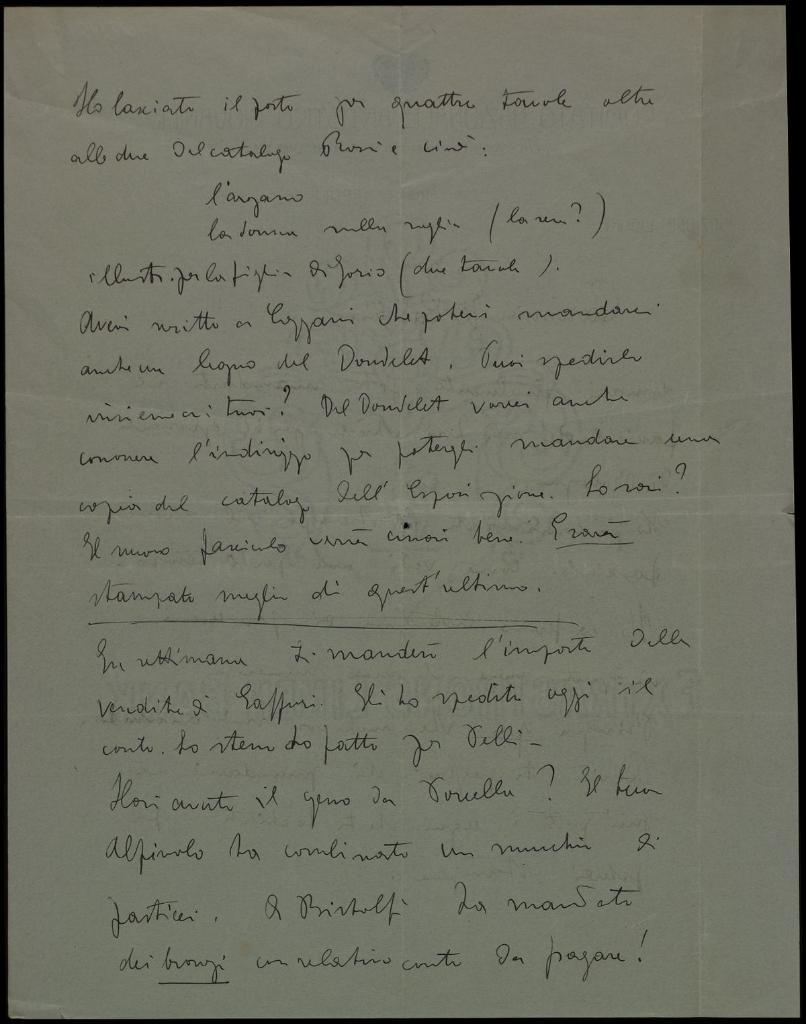 Ho lasciato il posto per quattro tavole oltre
alle due del catalogo Rossi e cioè:
l'argano
la donna sulla soglia (la sera?)
illustr. per la figlia di Jorio (due tavole).
Avevi scritto a Cozzani che potevi mandarci
anche un legno del Doudelet. Puoi spedirlo
insieme ai tuoi? Del Doudelet vorrei anche
conoscere l'indirizzo per potergli mandare una
copia del catalogo dell'Esposizione. Lo sai?
Il nuovo fascicolo verrà assai bene. E sarà
stampato meglio di quest'ultimo.
In settimana ti manderò l'importo delle
vendite di Gaffuri. Gli ho spedito oggi il
conto. Lo stesso ho fatto per
Hai avuto il gesso da ? Il tuo
ha combinato un mucchio di
pasticci. A Bistolfi ha mandato
dei bronzi con relativo conto da pagare!